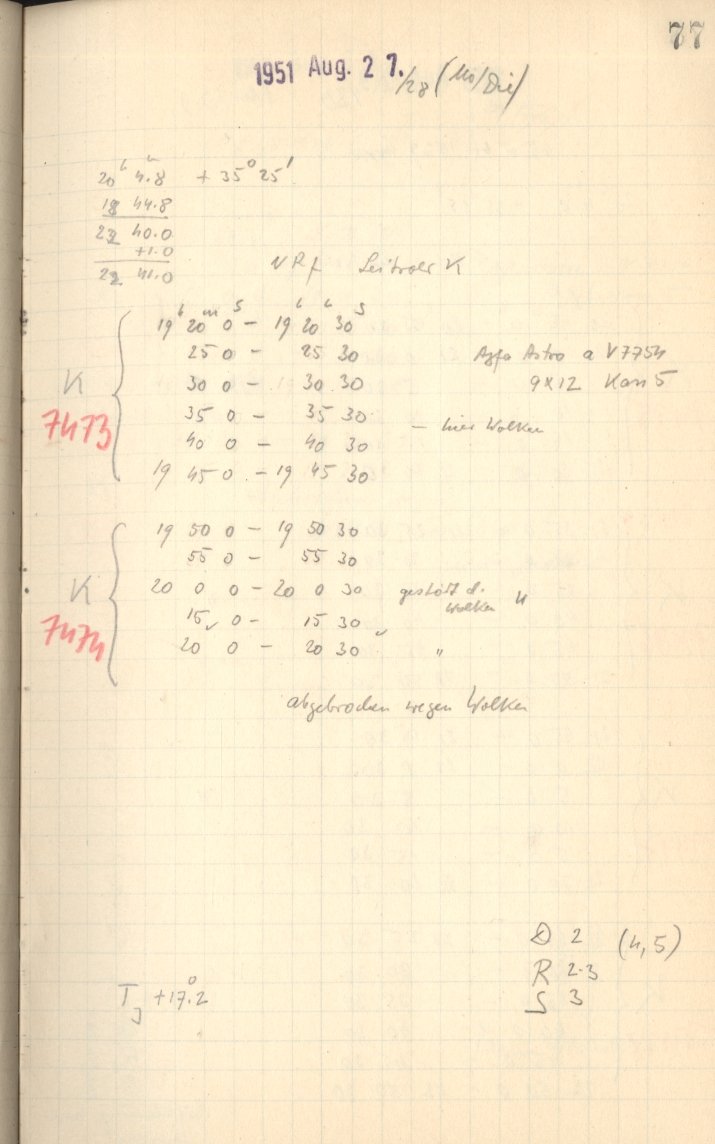 77
1951 Aug. 27. /28 (Mo/Die)
20h 4.8m + 35° 25'
18 44.8
22 40.0
+1.0
22 41.0
Leitrohr K
19h 20m 0s - 19h 20 30s
25 0 - 25 30 Agfa Astro a V7754
K 30 0 - 30 30 9x12 Kass 5
7473 35 0 - 35 30 - hier Wolken
40 0 - 40 30
19 45 0 - 19 45 30
19 50 0 - 19 50 30
55 0 - 55 30
K 20 0 0 - 20 0 30 gestört d. Wolken
7474 15 0 - 15 30
20 0 - 20 30 "
abgebrochen wegen Wolken
D 2 (4,5)
R 2-3
T J +17.°2 S 3